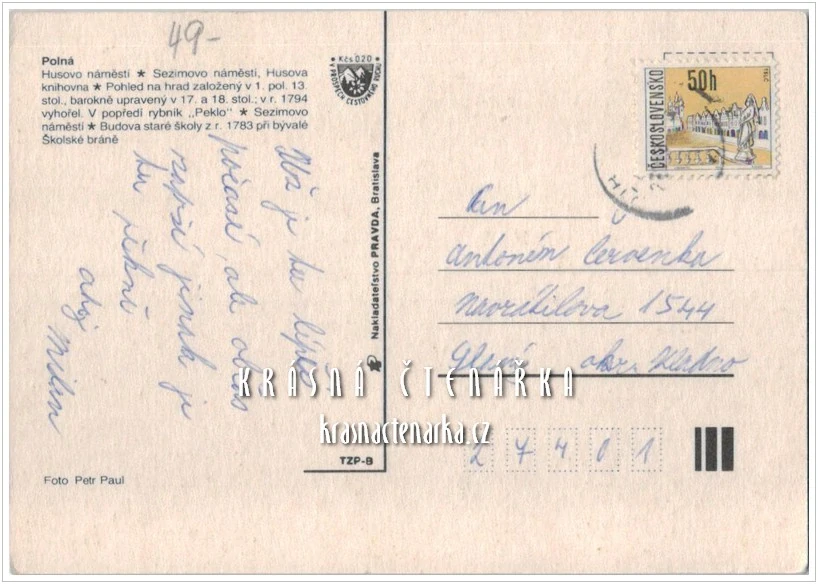 49-
Polná
Husovo náměstí ★ Sezimovo náměstí, Husova
knihovna ★ Pohled na hrad založený v 1. pol. 13.
stol., barokně upravený v 17. a 18. stol.; v r. 1794
vyhořel. V popředí rybník „Peklo" ★ Sezimovo
náměstí ★ Budova staré školy z r. 1783 při bývalé
Školské bráně
Kčs 0,20
V PROSPĚCH CESTOVNÉHO RUCHU
Už je tu lépe
počasí, ale občas
zaprší jinak je
tu pěkně
ahoj
Milan
Foto Petr Paul
Nakladatelstvo PRAVDA, Bratislava
TZP-B
ČESKOSLOVENSKO
50h
TELČ
Pan
Antonín Červenka
Navrátilova 1544
Slaný okr. Kladno
27401
KRÁSNÁ ČTENÁŘKA
krasnactenarka.cz